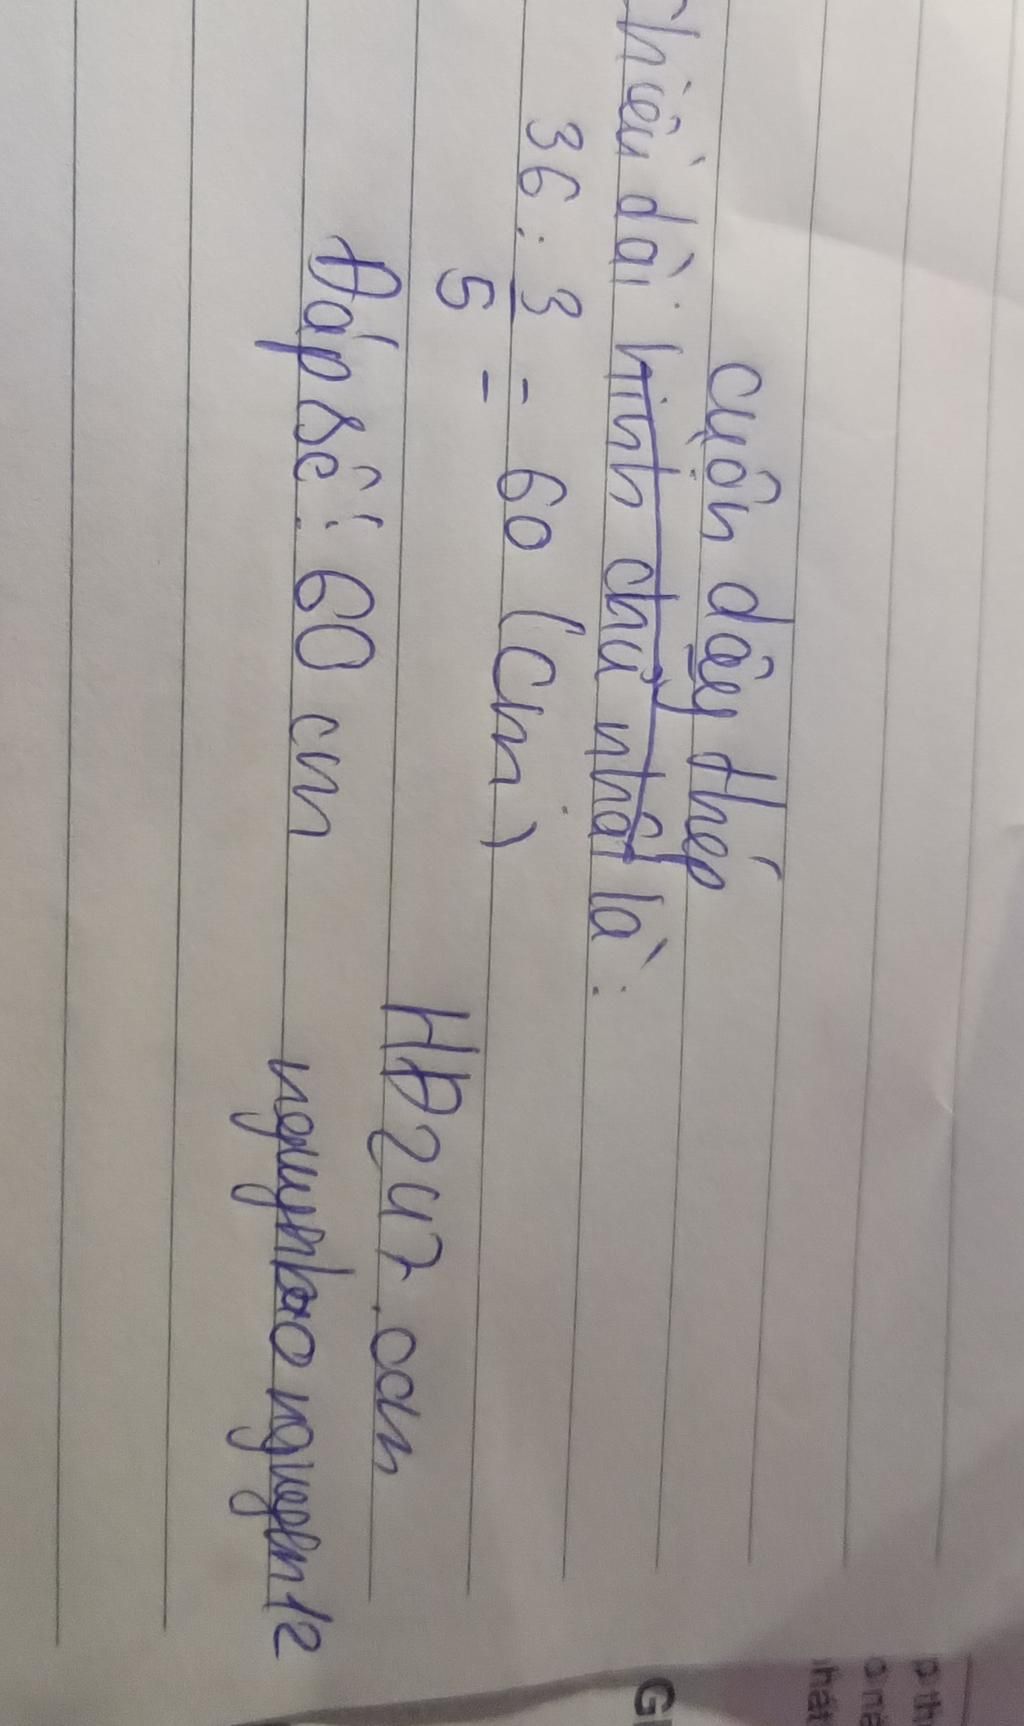 cuộn dây thép
Chiều dài hình chữ nhật là:
36 : 3/5 = 60 (cm)
Đáp số: 60 cm
HD247.com
nguynhao nguyen12